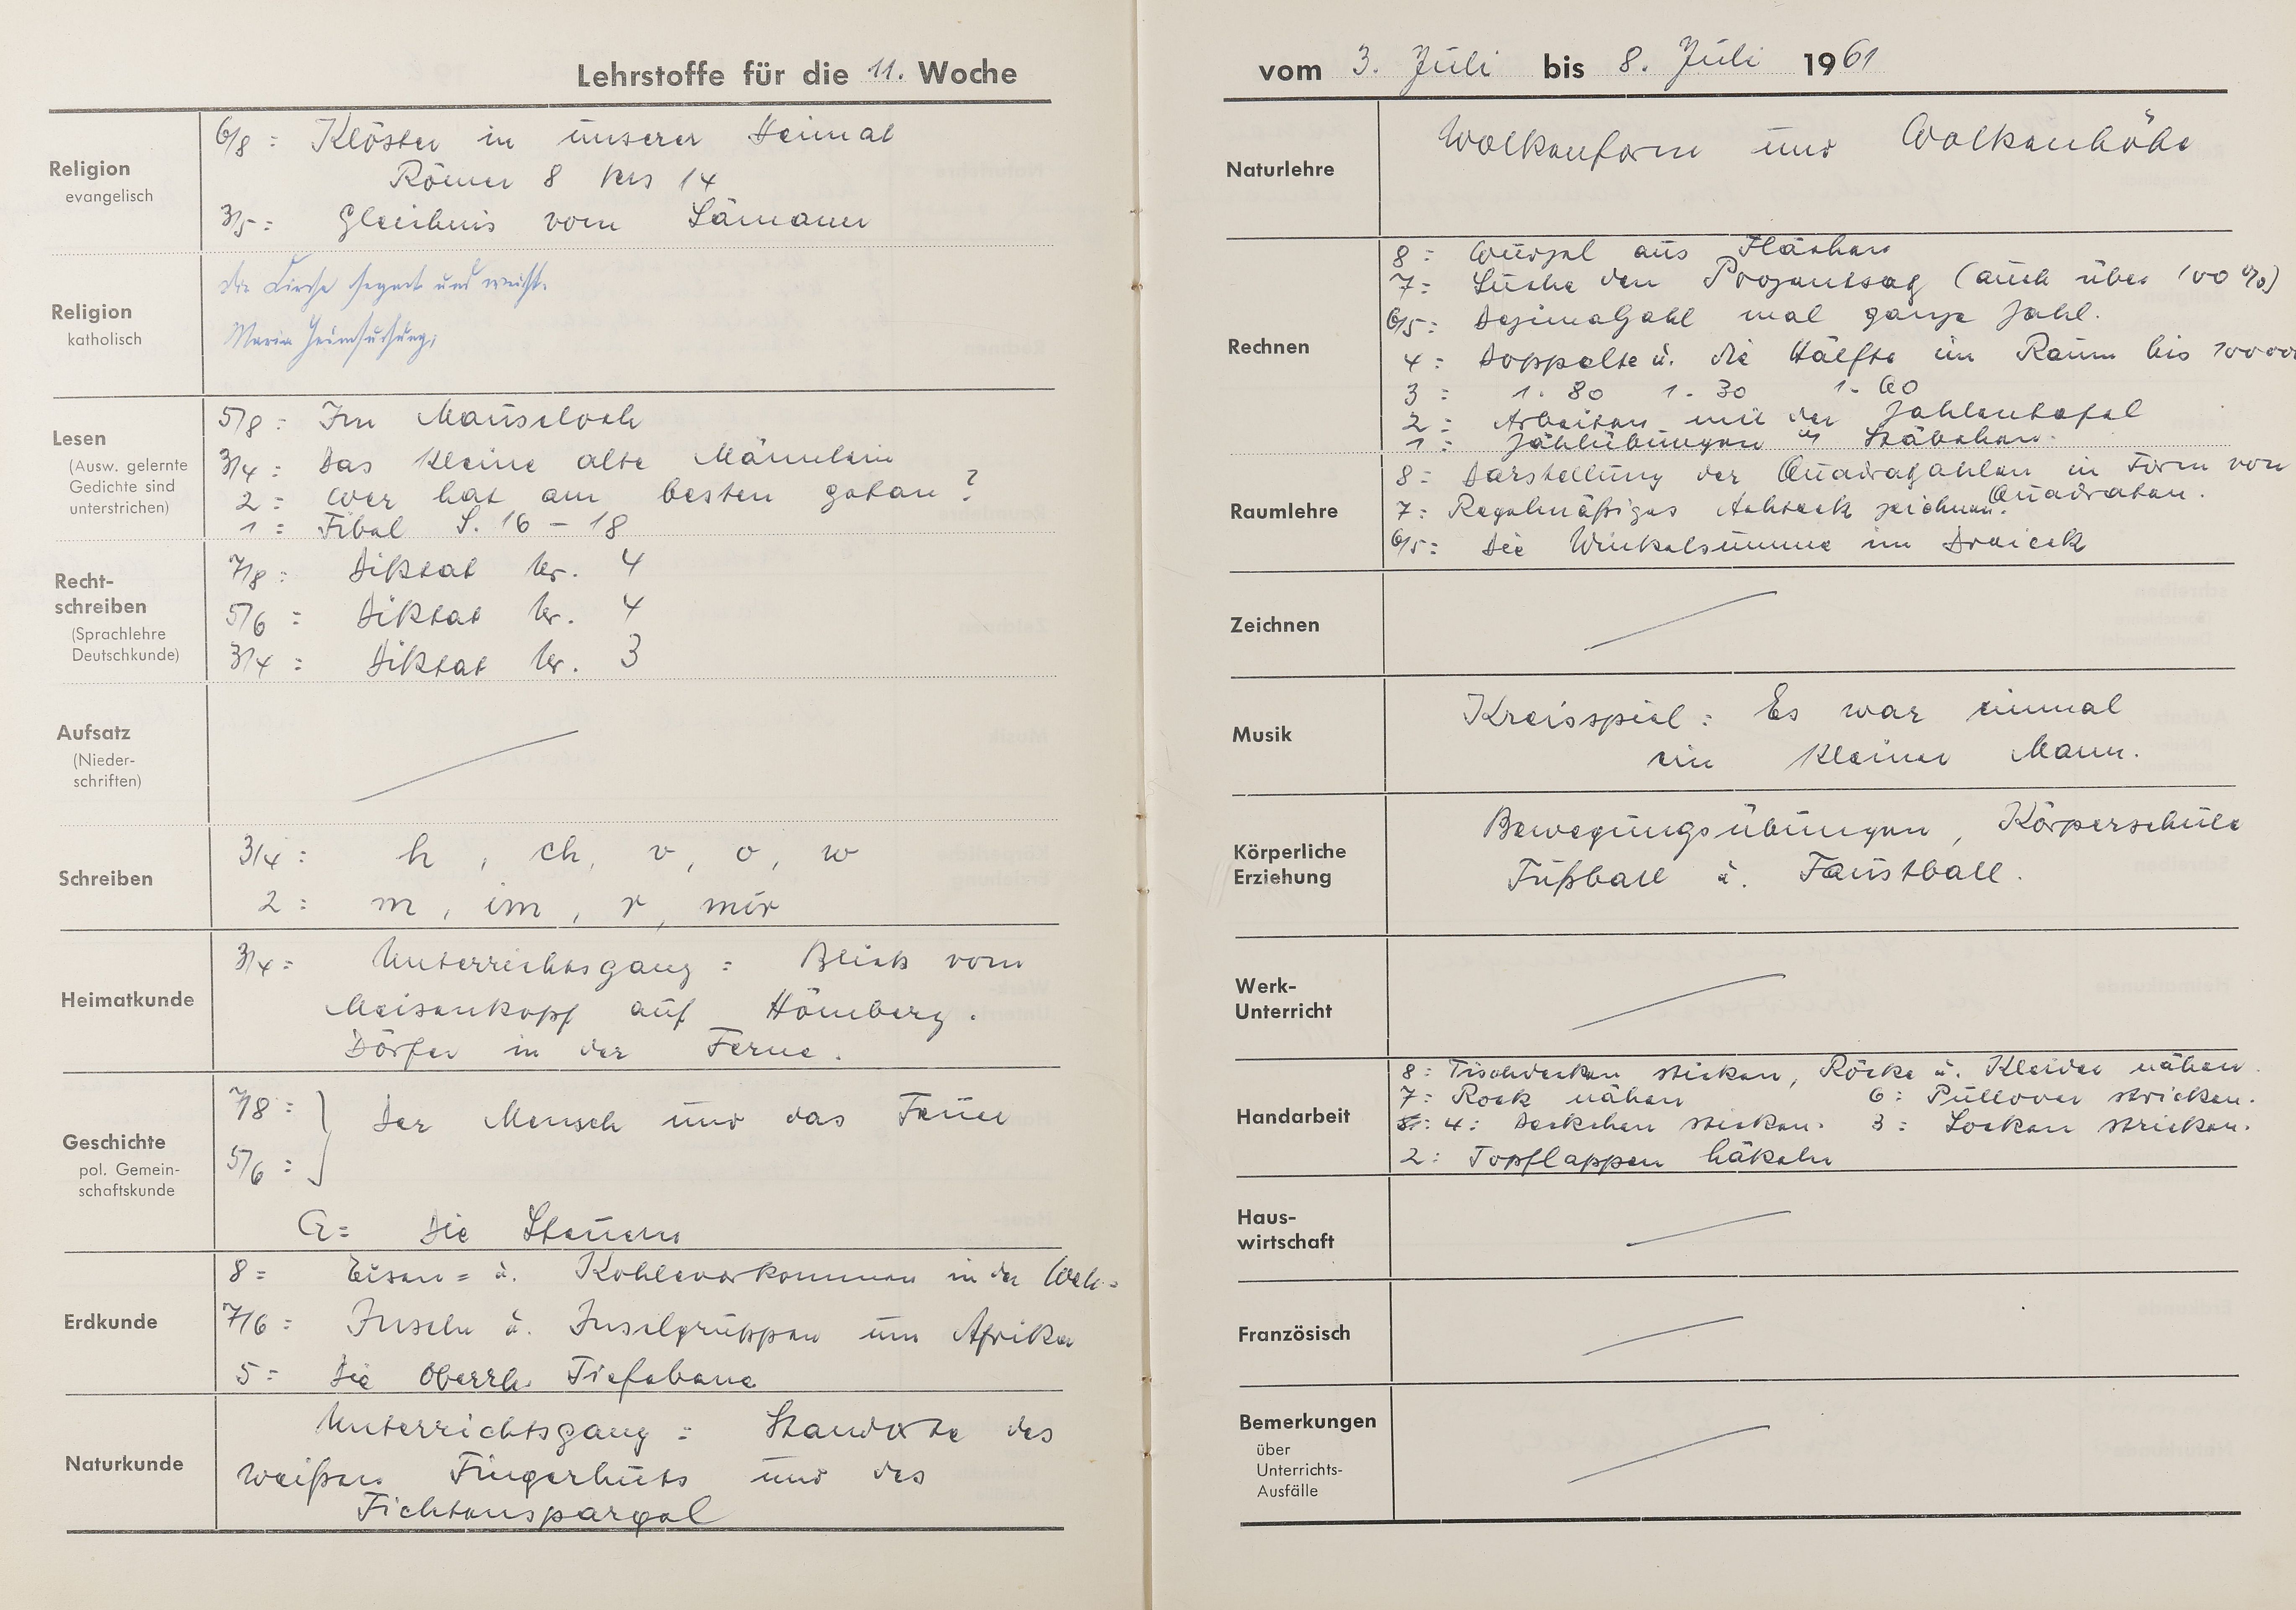 Lehrstoffe für die 11. Woche
Religion
evangelisch
6/8 : Klöster in unserer Heimat
Römer 8 bis 14
3/5 : Gleichnis vom Sämann
Religion
katholisch
Die Kirche segnet und weiht.
Maria Heimsuchung,
Lesen
(Ausw. gelernte
Gedichte sind
unterstrichen)
5/8 : Im Mauseloch
3/4 : Das kleine alte Männlein
2 : Wer hat am besten getan?
1 : Fibel S. 16 – 18
Recht-
schreiben
(Sprachlehre
Deutschkunde)
7/8 : Diktat Nr. 4
5/6 : Diktat Nr. 4
3/4 : Diktat Nr. 3
Aufsatz
(Nieder-
schriften)
Schreiben
3/4 : h , ch, v, o, w
2 : m , im , r, mir
Heimatkunde
3/4 : Unterrichtsgang : Blick vom
Meisenkopf auf Hömberg.
Dörfer in der Ferne.
Geschichte
pol. Gemein-
schaftskunde
7/8 :
5/6 : } Der Mensch und das Feuer
G : Die Steuern
Erdkunde
8 : Eisen= u. Kohlevorkommen in der Welt.
7/6 : Inseln u. Inselgruppen um Afrika
5 : Die Oberrh. Tiefebene
Naturkunde
Unterrichtsgang : Standorte des
weißen Fingerhuts und des
Fichtenspargel
vom 3. Juli bis 8. Juli 1961
Naturlehre
Wolkenform und Wolkenhöhe
Rechnen
8 : Wurzel aus Flächen
7 : Suche den Prozentsatz (auch über 100 %)
6/5 : Dezimalzahl mal ganze Zahl.
4 : Doppelte u. die Hälfte im Raum bis 10000
3 : 1 · 80 1 · 30 1 · 60
2 : Arbeiten mit der Zahlentafel
1 : Zählübungen m Stäbchen.
Raumlehre
8 : Darstellung der Quadratzahlen in Form von
Quadraten.
7 : Regelmäßiges Achteck zeichnen.
6/5 : Die Winkelsumme im Dreieck
Zeichnen
Musik
Kreisspiel : Es war einmal
ein kleiner Mann.
Körperliche
Erziehung
Bewegungsübungen, Körperschule
Fußball u. Faustball.
Werk-
Unterricht
Handarbeit
8 : Tischdecken sticken, Röcke u. Kleider nähen.
7 : Rock nähen 6 : Pullover stricken.
4 : Deckchen sticken. 3 : Socken stricken.
2 : Topflappen häkeln
Haus-
wirtschaft
Französisch
Bemerkungen
über
Unterrichts-
Ausfälle